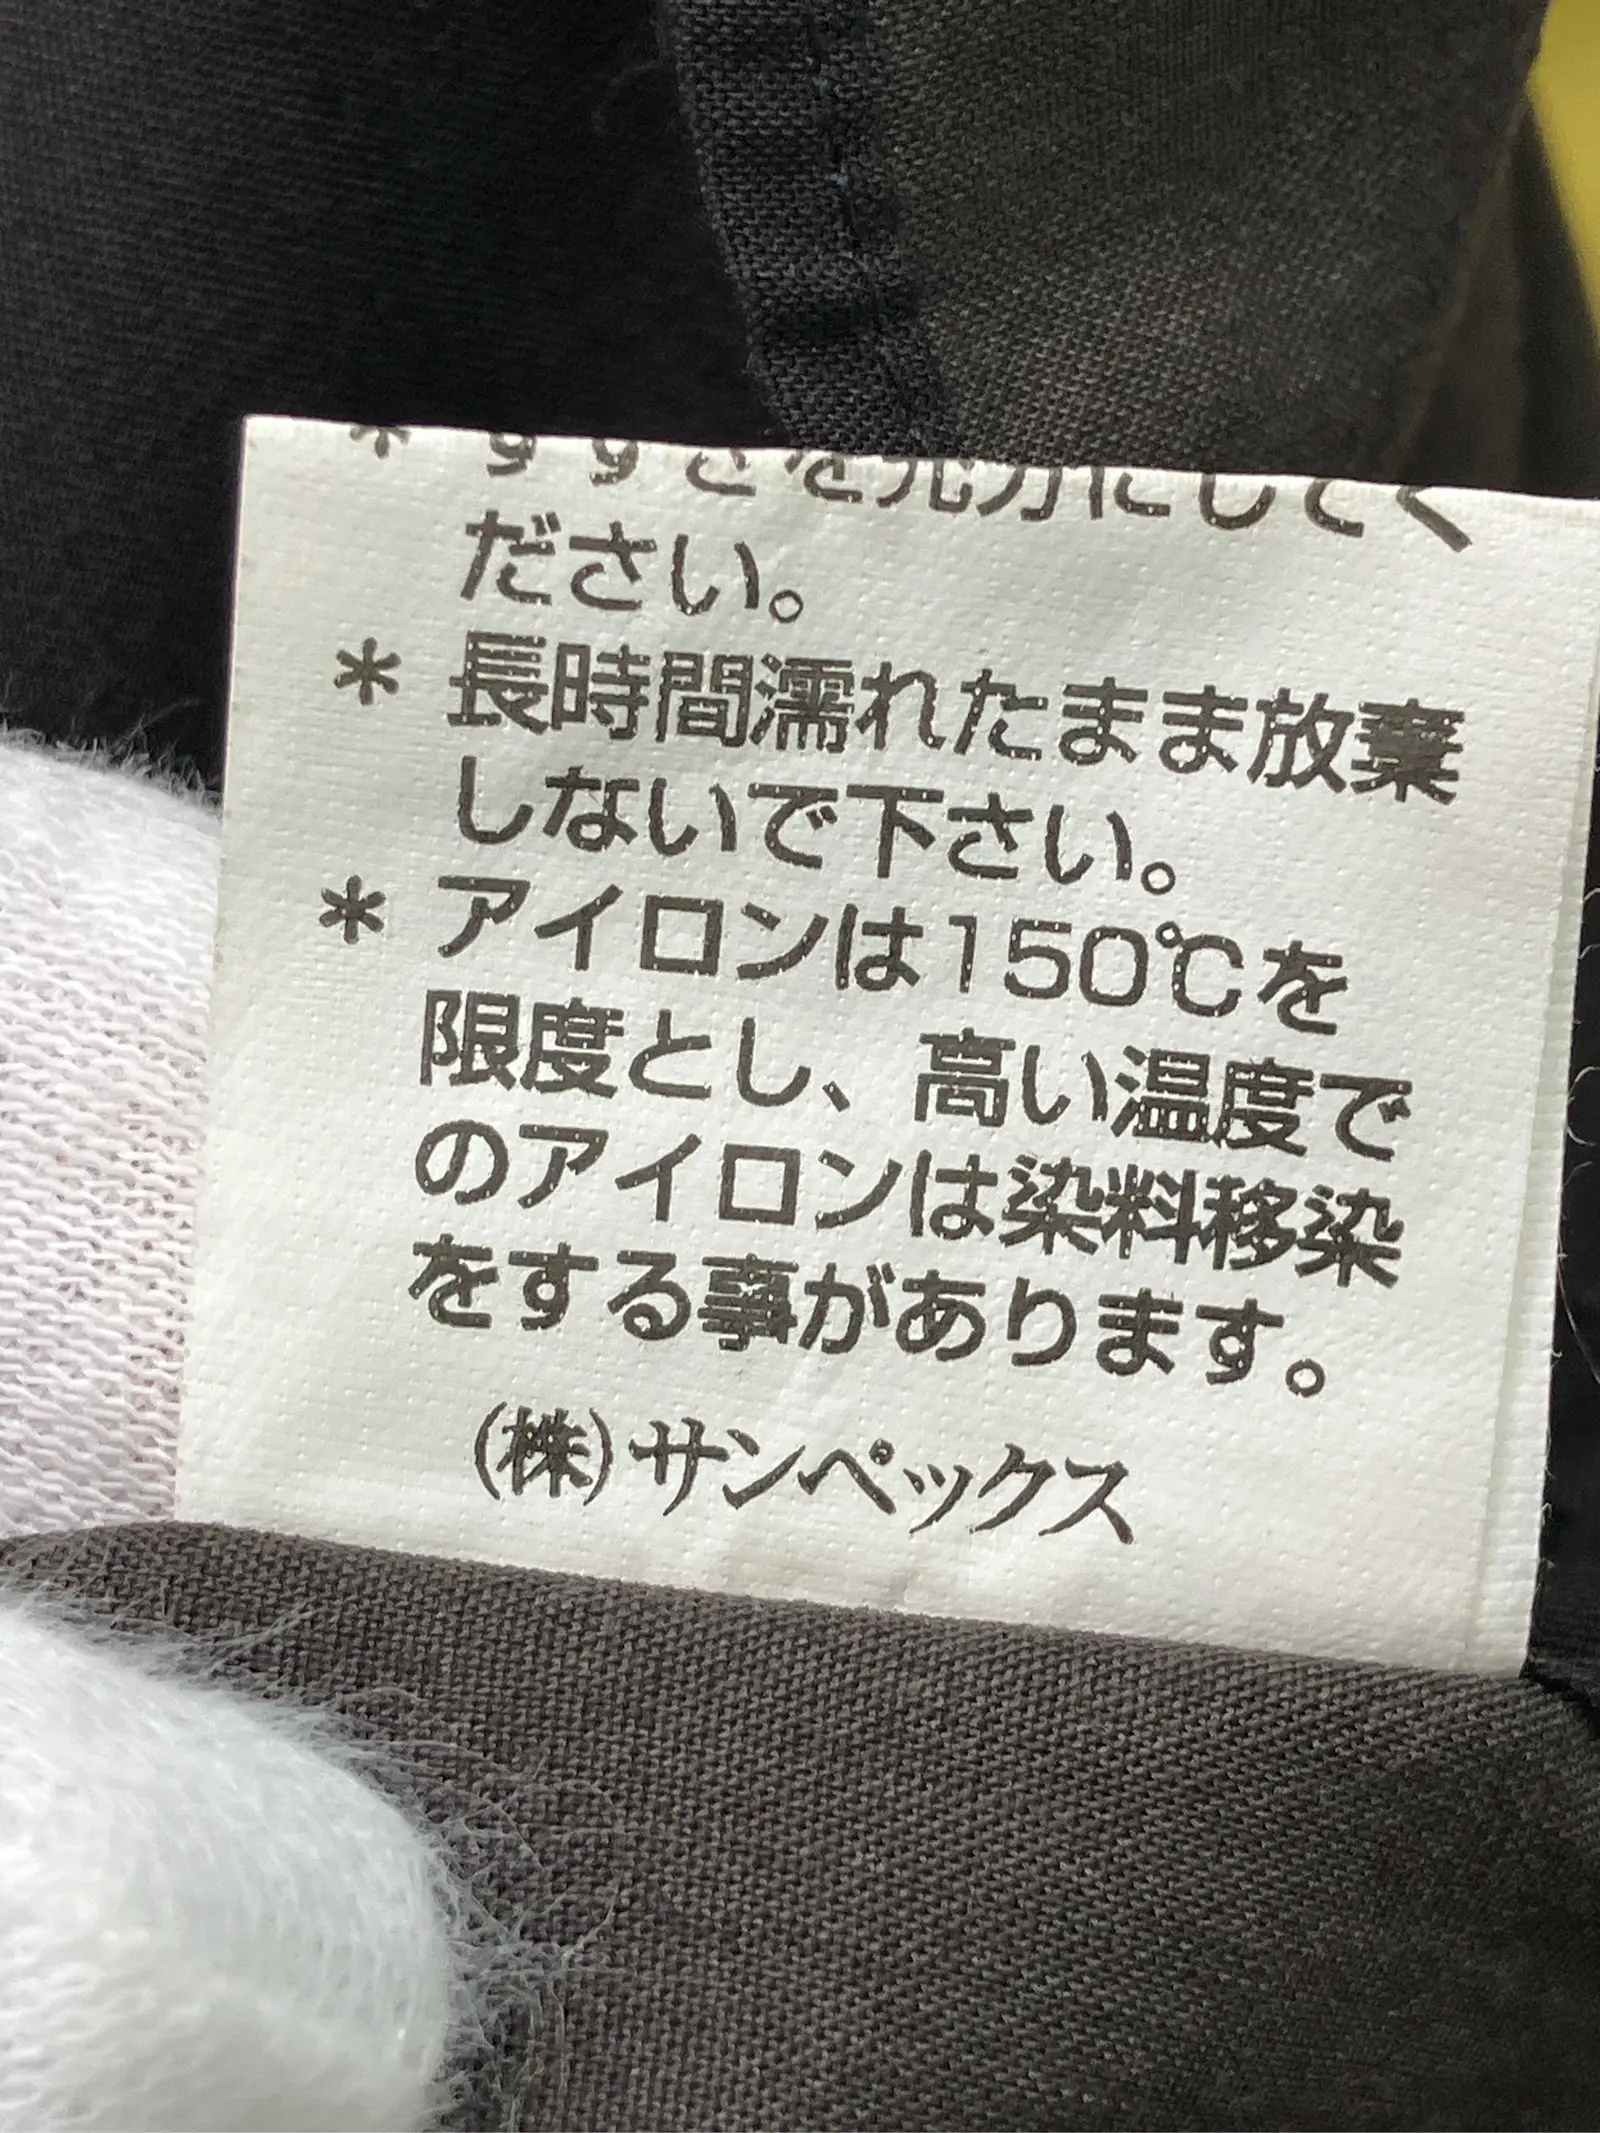 ＊すすぎを充分にしてく
ださい。
＊長時間濡れたまま放棄
しないで下さい。
＊アイロンは150℃を
限度とし、高い温度で
のアイロンは染料移染
をする事があります。
(株)サンペックス